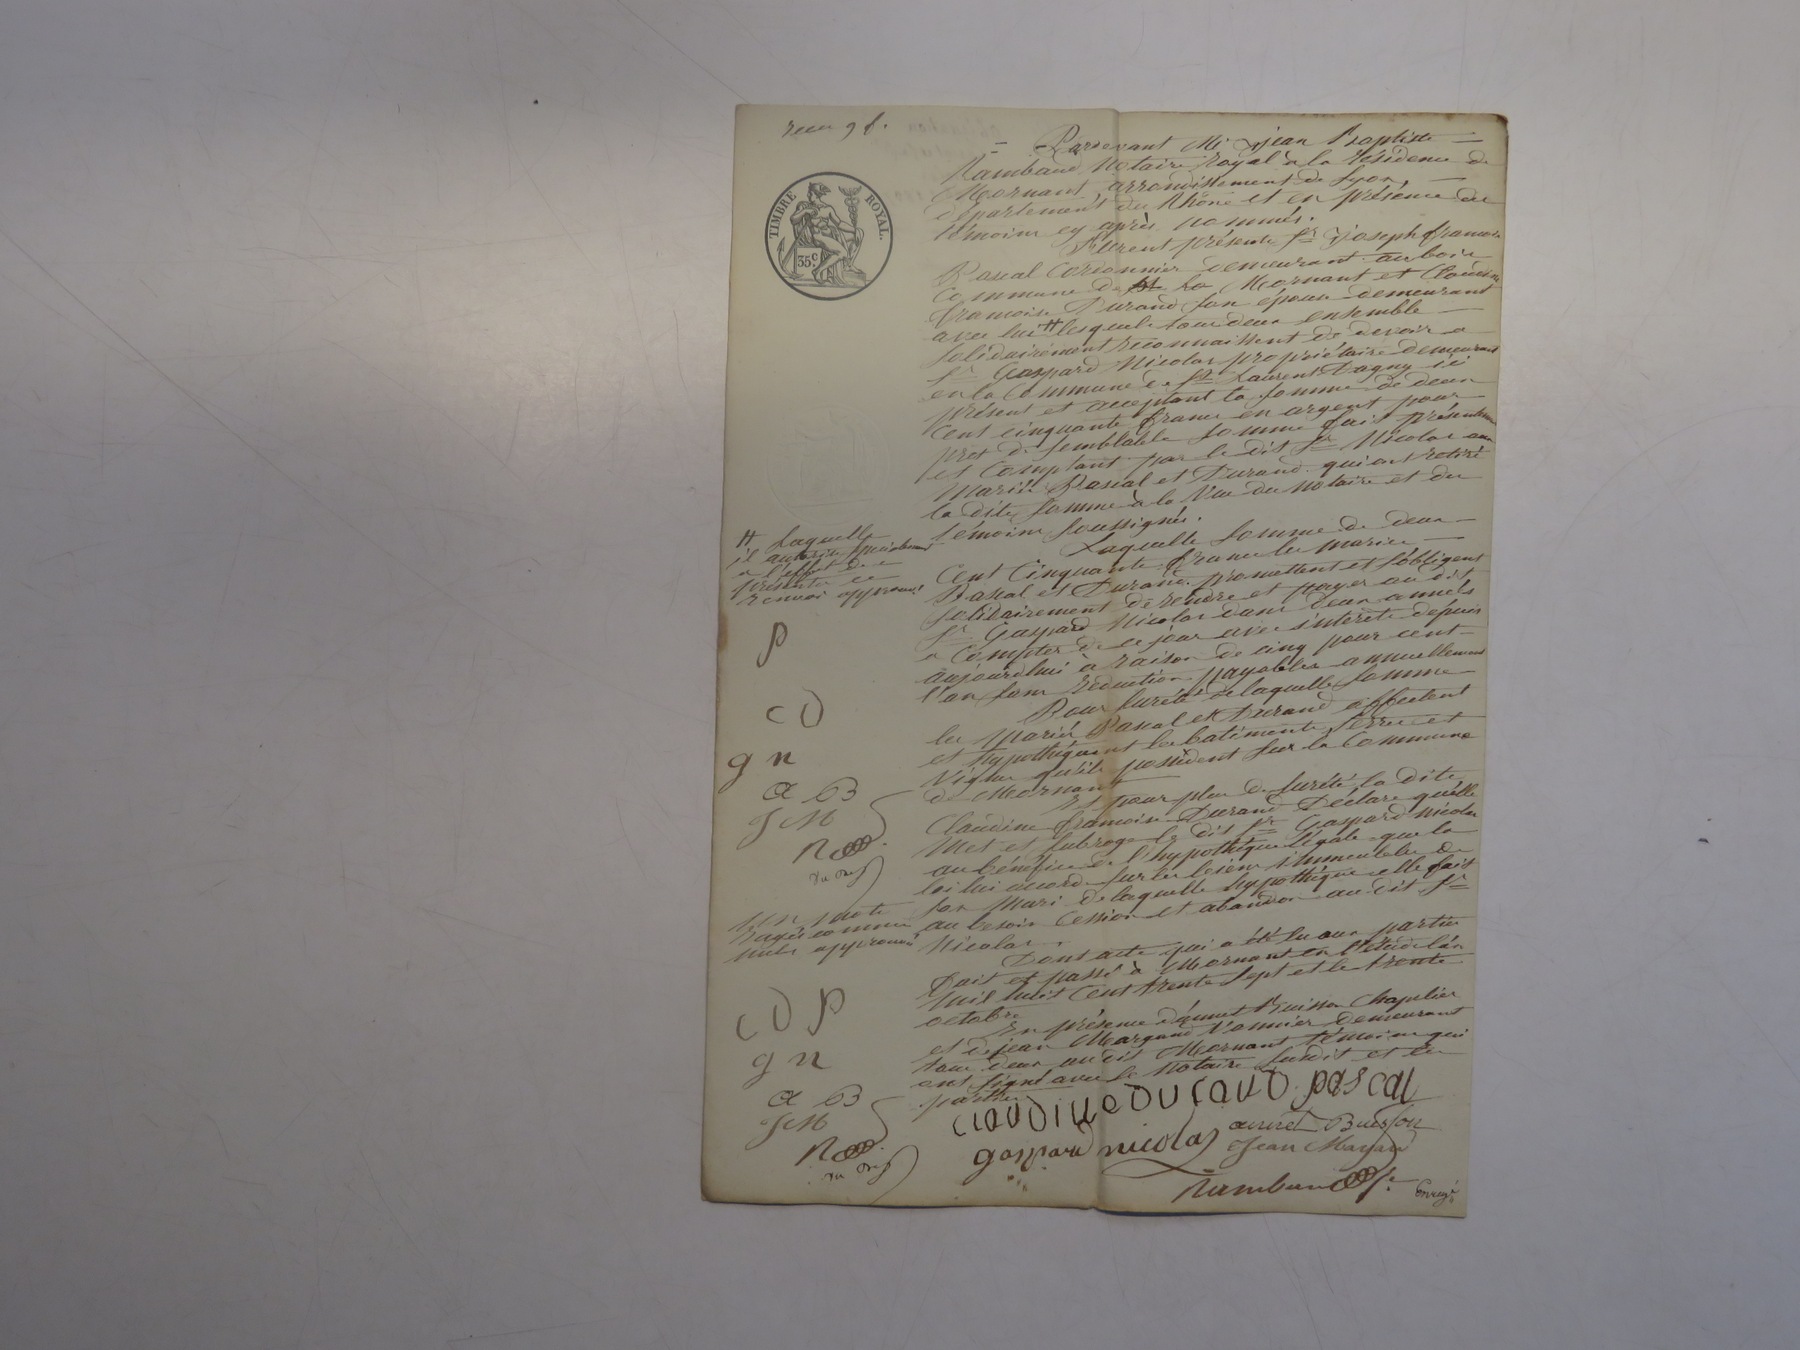 recu 9 f.
TIMBRE ROYAL.
35 c.
= Pardevant Me Jean Baptiste =
Rambaud Notaire Royal à la résidence de
Mornant arrondissement de Lyon, —
département du Rhône et en présence des
témoins cy après nommés.
furent présents Sr Joseph françois
Pascal Cordonnier demeurant au bois
Commune de Mornant et Claudine
françoise Durand son épouse demeurant
avec lui # lesquels tous deux ensemble —
solidairement reconnaissent de devoir a
Sr Gaspard Nicolas propriétaire demeurant
en la Commune de St Laurent Dagny ici
présent et acceptant la somme de deux
Cent cinquante francs en argent pour
pret de semblable somme fait présentement
et Comptant par le dit Sr Nicolas aux
Mariés Pascal et Durand qui ont retiré
la dite somme à la Vue du Notaire et des
témoins soussignés.
Laquelle somme de deux —
Cent Cinquante francs les mariés —
Pascal et Durand promettent et s'obligent
solidairement de rendre et payer au dit
Sr Gaspard Nicolas dans deux années
a Compter de ce jour avec intérêts depuis
aujourdhui à raison de cinq pour cent
l'an sans réduction payables annuellement
Pour sureté de laquelle somme
les mariés Pascal et Durand affectent
et hypothéquent les batiments, terres et
Vignes qu'ils possèdent sur la Commune
de Mornant
Et pour plus de sureté la dite
Claudine françoise Durand Déclare quelle
Met et subroge le dit Sr Gaspard Nicolas
au bénéfice de l'hypothèque légale que la
loi lui accorde sur les biens immeubles de
son Mari de laquelle hypothèque elle fait
au besoin Cession et abandon au dit Sr
Nicolas.
Dont acte qui a été lu aux parties
fait et passé à Mornant en l'étude l'an
mil huit Cent trente sept et le trente
octobre
En présence d'aimé Buisson Chapelier
et de jean Margand Vannier demeurant
tous deux au dit Mornant témoins qui
ont signé avec le Notaire susdit et les
parties
# Laquelle
il autorise spécialement
a l'effet des
présentes ce
renvoi approuvé
P
C D
g n
a B
J M
R
un mot
rayé comme
nul approuvé
C D P
g n
a B
J M
R
Claudine Durand Pascal
gaspard nicolas
Buisson
Jean Margand
Rambaud